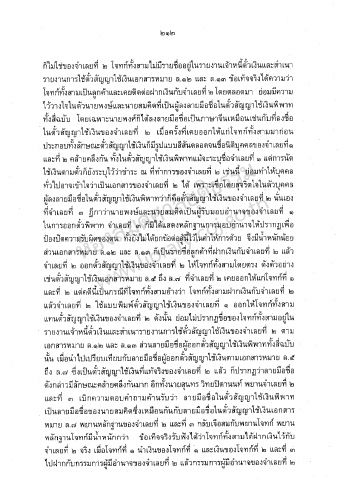 ๒๑๒
ก็ไม่ใช่ของจำเลยที่ ๒ โจทก์ทั้งสามไม่มีรายชื่ออยู่ในรายงานเจ้าหนี้ตั๋วเงินและสำเนา
รายงานการใช้ตั๋วสัญญาใช้เงินเอกสารหมาย ล.๑๒ และ ล.๑๓ ข้อเท็จจริงได้ความว่า
โจทก์ทั้งสามเป็นลูกค้าและเคยติดต่อฝากเงินกับจำเลยที่ ๒ โดยตลอดมา ย่อมมีความ
ไว้วางใจในตัวนายพงษ์และนายสมคิดที่เป็นผู้ลงลายมือชื่อในตั๋วสัญญาใช้เงินพิพาท
ทั้งสี่ฉบับ โดยเฉพาะนายพงศ์ก็ได้ลงลายมือชื่อเป็นภาษาจีนเหมือนเช่นกับที่ลงชื่อ
ในตั๋วสัญญาใช้เงินของจำเลยที่ ๒ เมื่อครั้งที่เคยออกให้แก่โจทก์ทั้งสามมาก่อน
ประกอบทั้งลักษณะตั๋วสัญญาใช้เงินก็มีรูปแบบสีสันตลอดจนชื่อนิติบุคคลของจำเลยที่๑
และที่ ๒ คล้ายคลึงกัน ทั้งในตั๋วสัญญาใช้เงินพิพาทแม้จะระบุชื่อจำเลยที่ ๑ แต่การนัด
ใช้เงินตามตั๋วก็ยังระบุไว้ว่าชำระ ณ ที่ทำการของจำเลยที่ ๒ เช่นนี้ ย่อมทำให้บุคคล
ทั่วไปอาจเข้าใจว่าเป็นเอกสารของจำเลยที่ ๒ ได้ เพราะเชื่อโดยสุจริตใจในตัวบุคคล
ผู้ลงลายมือชื่อในตั๋วสัญญาใช้เงินพิพาทว่าก็คือตั๋วสัญญาใช้เงินของจำเลยที่ ๒ นั่นเอง
ที่จำเลยที่ ๓ ฎีกาว่านายพงษ์และนายสมคิดเป็นผู้รับมอบอำนาจของจำเลยที่ ๑
ในการออกตั๋วพิพาท จำเลยที่ ๓ ก็มิได้แสดงหลักฐานการมอบอำนาจให้ปรากฏเพื่อ
ป้องปัดความรับผิดของตน ทั้งยังไม่ได้ยกข้อต่อสู้นี้ไว้ในคำให้การด้วย จึงมีน้ำหนักน้อย
ส่วนเอกสารหมาย ล.๑๒ และ ล.๑๓ ก็เป็นรายชื่อลูกค้าที่ฝากเงินกับจำเลยที่ ๒ แล้ว
จำเลยที่ ๒ ออกตั๋วสัญญาใช้เงินของจำเลยที่ ๒ ให้โจทก์ทั้งสามโดยตรง ดังตัวอย่าง
เช่นตั๋วสัญญาใช้เงินเอกสารหมาย ล.๕ ถึง ล.๗ ที่จำเลยที่ ๒ เคยออกให้แก่โจทก์ที่ ๑
และที่ ๒ แต่คดีนี้เป็นกรณีที่โจทก์ทั้งสามอ้างว่า โจทก์ทั้งสามฝากเงินกับจำเลยที่ ๒
แล้วจำเลยที่ ๒ ใช้แบบพิมพ์ตั๋วสัญญาใช้เงินของจำเลยที่ ๑ ออกให้โจทก์ทั้งสาม
แทนตั๋วสัญญาใช้เงินของจำเลยที่ ๒ ดังนั้น ย่อมไม่ปรากฏชื่อของโจทก์ทั้งสามอยู่ใน
รายงานเจ้าหนี้ตั๋วเงินและสำเนารายงานการใช้ตั๋วสัญญาใช้เงินของจำเลยที่ ๒ ตาม
เอกสารหมาย ล.๑๒ และ ล.๑๓ ส่วนลายมือชื่อผู้ออกตั๋วสัญญาใช้เงินพิพาททั้งสี่ฉบับ
นั้น เมื่อนำไปเปรียบเทียบกับลายมือชื่อผู้ออกตั๋วสัญญาใช้เงินตามเอกสารหมาย ล.๕
ถึง ล.๗ ซึ่งเป็นตั๋วสัญญาใช้เงินที่แท้จริงของจำเลยที่ ๒ แล้ว ก็ปรากฏว่าลายมือชื่อ
ดังกล่าวมีลักษณะคล้ายคลึงกันมาก อีกทั้งนายสุนทร วิทยปิตานนท์ พยานจำเลยที่ ๒
และที่ ๓ เบิกความตอบคำถามค้านรับว่า ลายมือชื่อในตั๋วสัญญาใช้เงินพิพาท
เป็นลายมือชื่อของนายสมคิดซึ่งเหมือนกันกับลายมือชื่อในตั๋วสัญญาใช้เงินเอกสาร
หมาย ล.๗ พยานหลักฐานของจำเลยที่ ๒ และที่ ๓ กลับเจือสมกับพยานโจทก์ พยาน
หลักฐานโจทก์มีน้ำหนักกว่า ข้อเท็จจริงรับฟังได้ว่าโจทก์ทั้งสามได้ฝากเงินไว้กับ
จำเลยที่ ๒ จริง เมื่อโจทก์ที่ ๑ นำเงินของโจทก์ที่ ๑ และเงินของโจทก์ที่ ๒ และที่ ๓
ไปฝากกับกรรมการผู้มีอำนาจของจำเลยที่ ๒ แล้วกรรมการผู้มีอำนาจของจำเลยที่ ๒